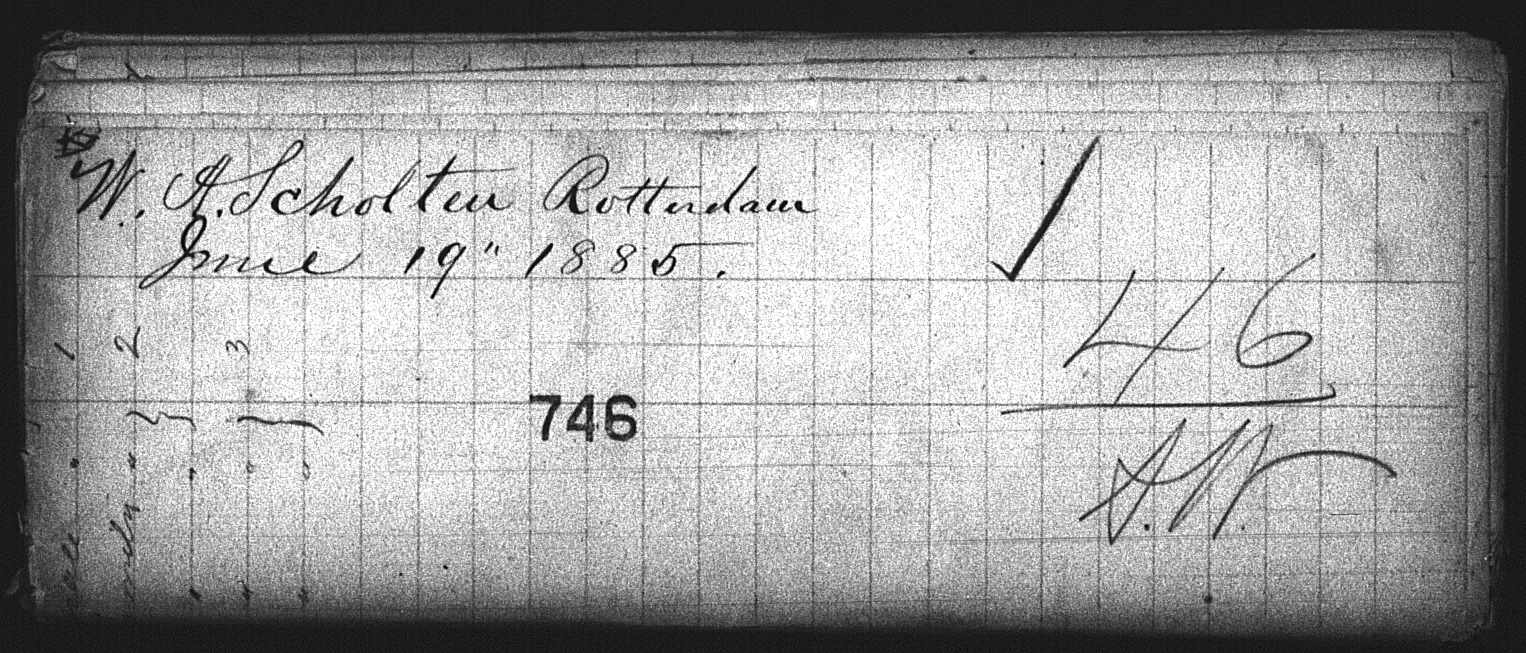 W. A. Scholten Rotterdam
June 19" 1885.
46
746
1
2
3